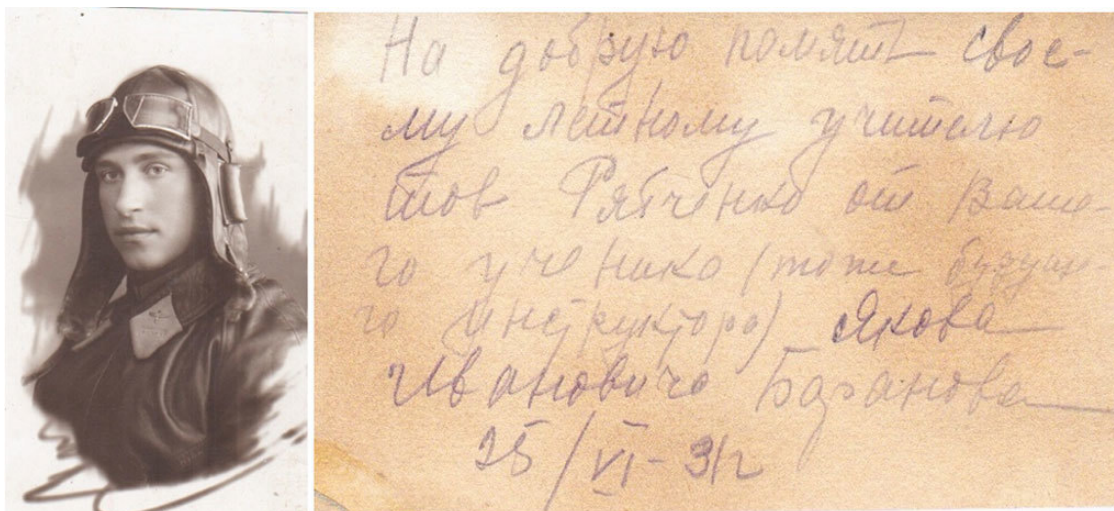 На добрую память свое-
му летному учителю
тов Рябченко от Ваше-
го ученика (тоже будуще-
го инструктора) Якова
Ивановича Баранова
25/VI-31г